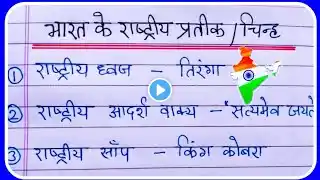 भारत के राष्ट्रीय प्रतीक/चिन्ह
① राष्ट्रीय ध्वज – तिरंगा
② राष्ट्रीय आदर्श वाक्य – 'सत्यमेव जयते
③ राष्ट्रीय साँप – किंग कोबरा